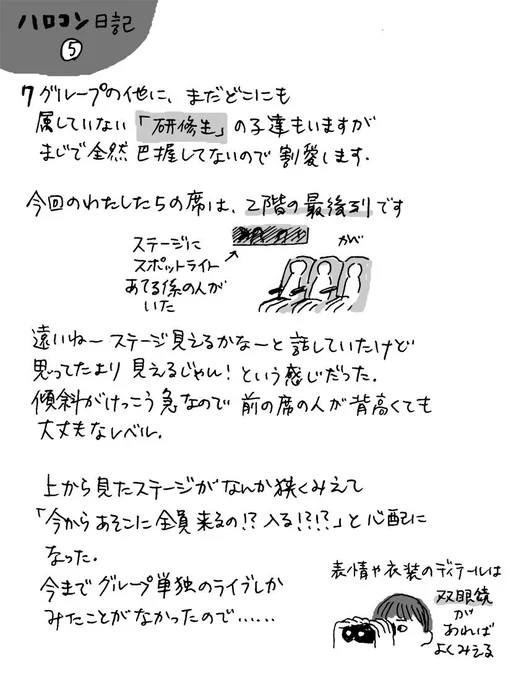 ハロコン日記
⑤
7グループの他に、まだどこにも
属していない「研修生」の子達もいますが
まじで全然 巴握してないので 割愛します.
今回のわたしたちの席は、2階の最後列です
ステージに
スポットライト
あてる係の人が
いた
かべ
遠いねー ステージ見えるかな〜と話していたけど
思ってたより 見えるじゃん!という感じだった.
傾斜がけっこう急なので 前の席の人が背高くても
大丈夫なレベル.
上から見たステージがなんか狭くみえて
「今からあそこに全員来るの!?入る!?!?」と心配に
なった.
今まで グループ単独のライブしか
みたことがなかったので……
表情や衣装のディテールは
双眼鏡
が
あれば
よくみえる